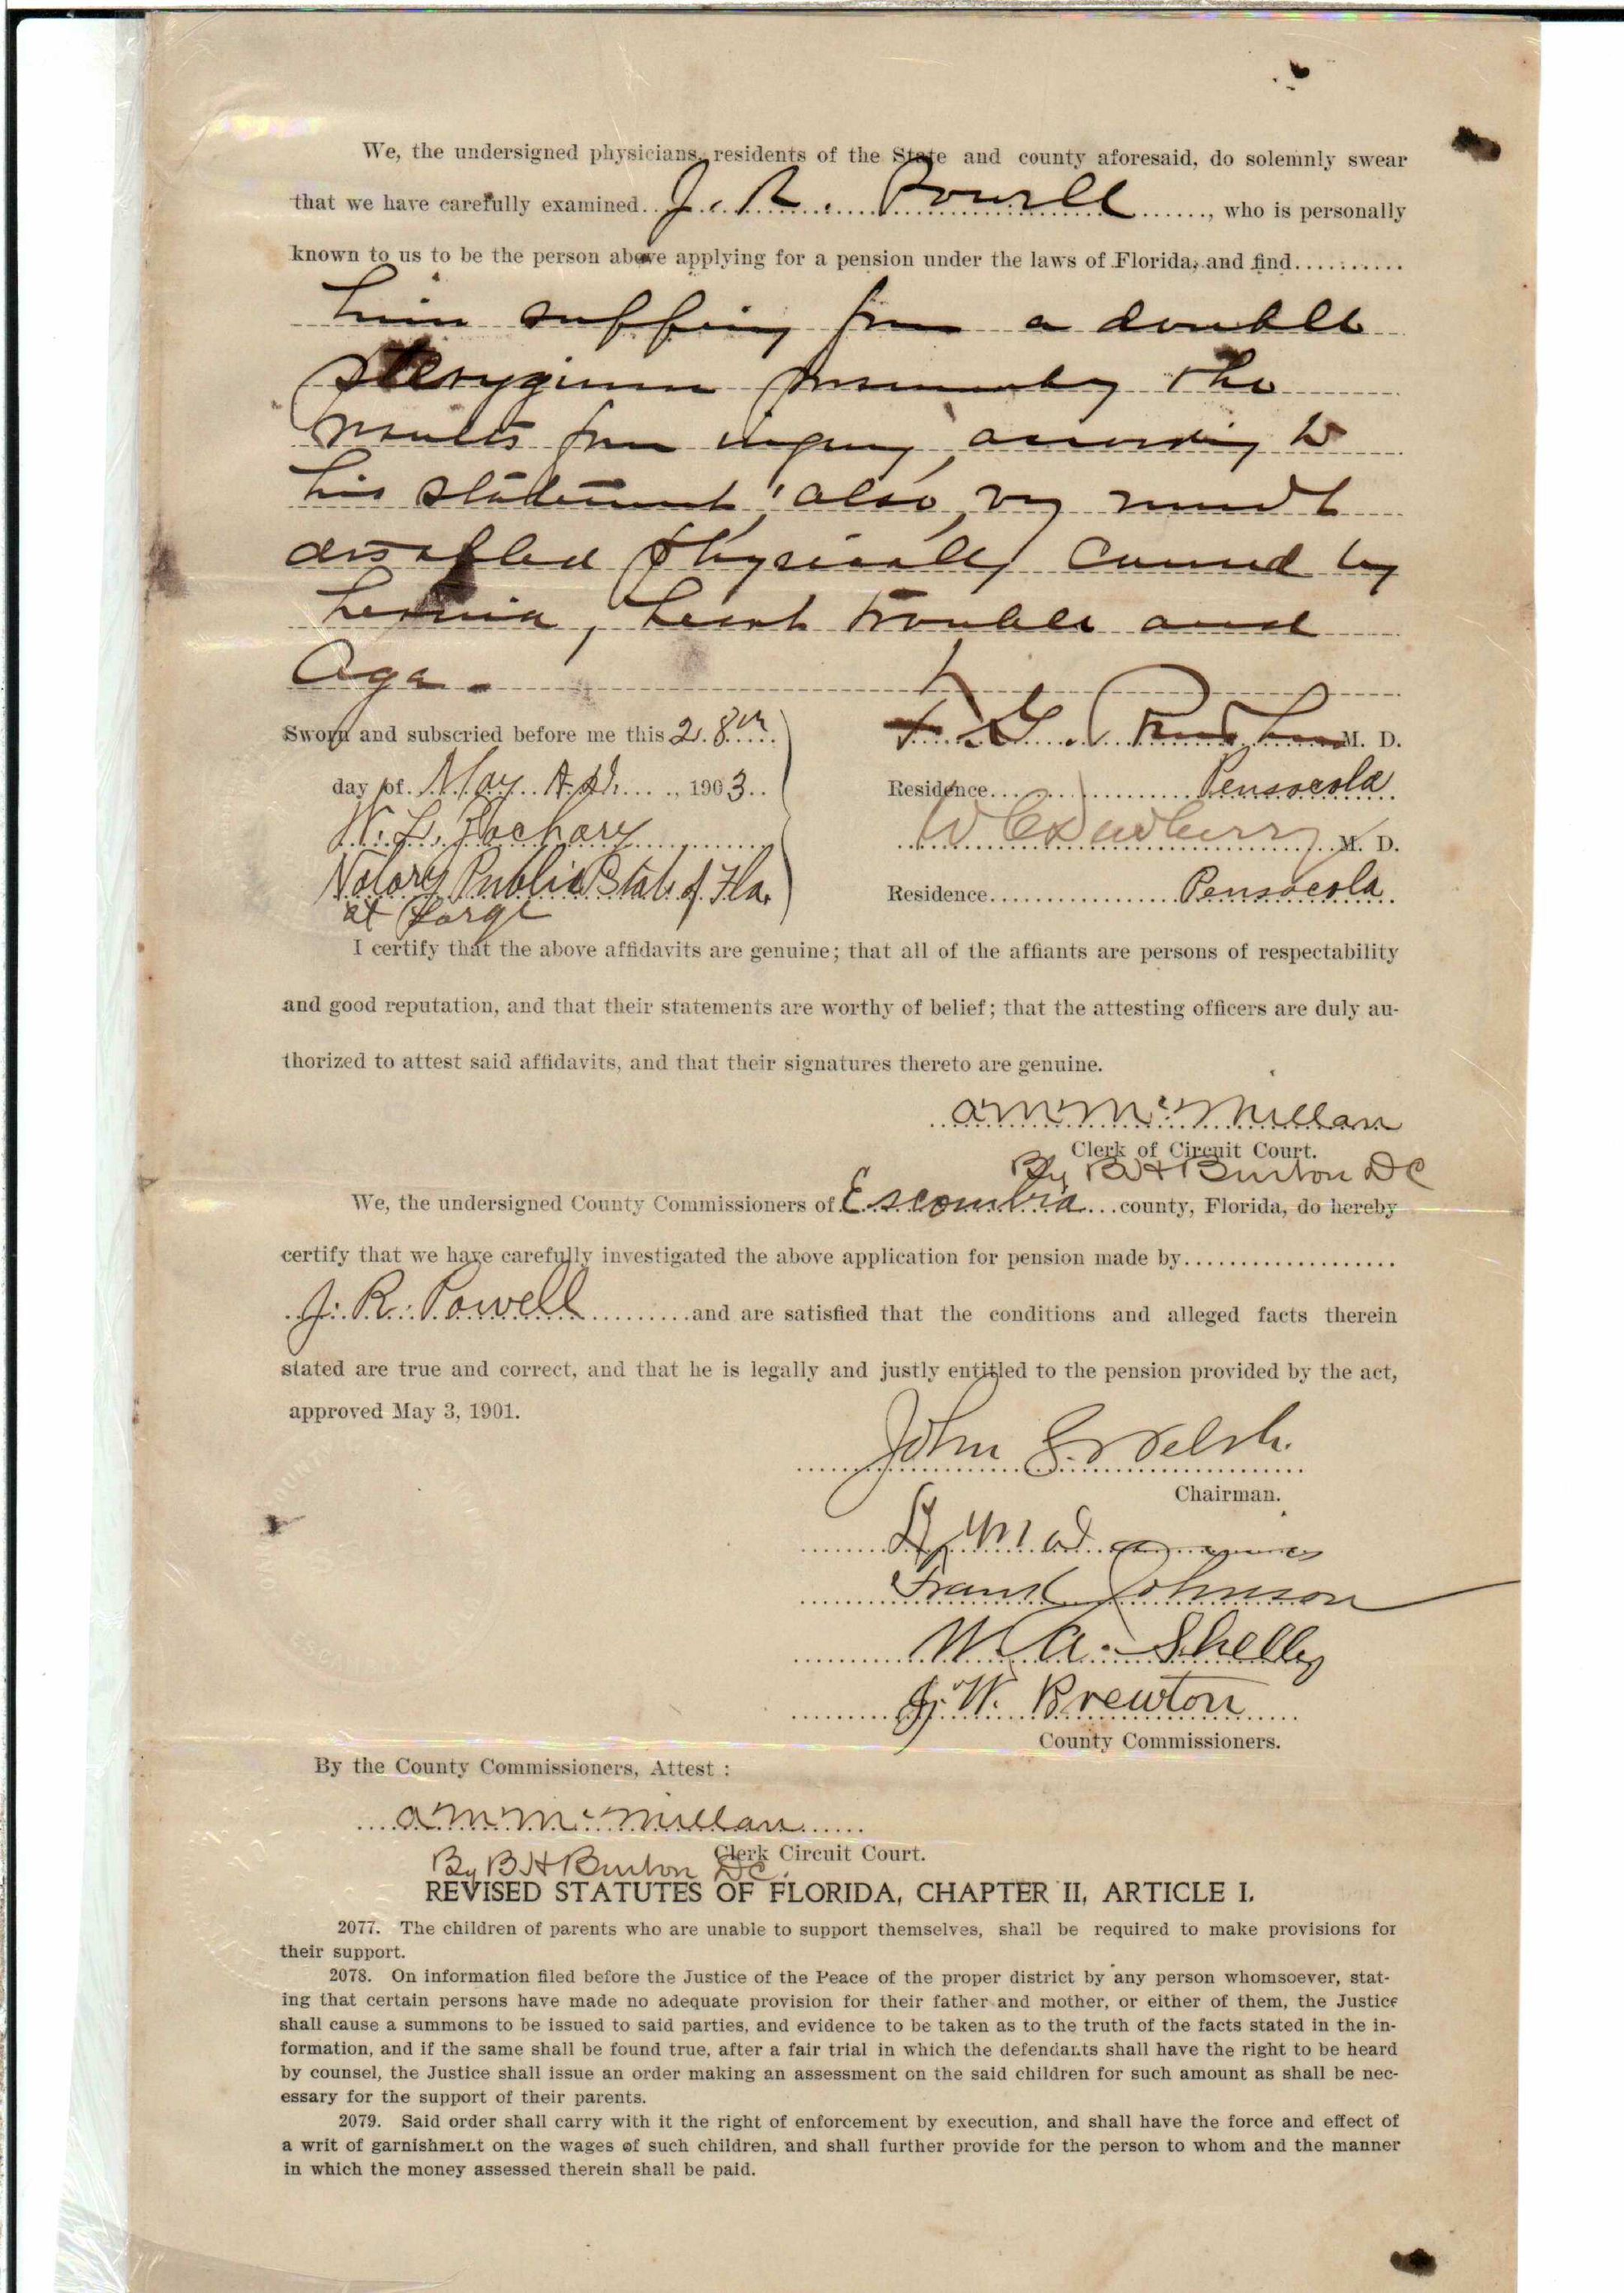 We, the undersigned physicians, residents of the State and county aforesaid, do solemnly swear
that we have carefully examined J. R. Powell, who is personally
known to us to be the person above applying for a pension under the laws of Florida, and find
him suffering from a double
pterygium presumably the
results from injury, according to
his statement, also, very much
disabled physically caused by
hernia, heart trouble and
Age.
Sworn and subscried before me this 28th
day of May A.D. 1903
W. L. Zachary
Notary Public State of Fla.
at Large
M. D.
Residence Pensacola
W C Dewberry M. D.
Residence Pensacola
I certify that the above affidavits are genuine; that all of the affiants are persons of respectability
and good reputation, and that their statements are worthy of belief; that the attesting officers are duly au-
thorized to attest said affidavits, and that their signatures thereto are genuine.
A M McMillan
Clerk of Circuit Court.
By B H Burton DC
We, the undersigned County Commissioners of Escambia county, Florida, do hereby
certify that we have carefully investigated the above application for pension made by
J. R. Powell and are satisfied that the conditions and alleged facts therein
stated are true and correct, and that he is legally and justly entitled to the pension provided by the act,
approved May 3, 1901.
John S. Welsh.
Chairman.
Frank Johnson
M. A. Shelley
J. W. Brewton
County Commissioners.
By the County Commissioners, Attest :
A M McMillan
Clerk Circuit Court.
By B H Burton DC.
REVISED STATUTES OF FLORIDA, CHAPTER II, ARTICLE I.
2077. The children of parents who are unable to support themselves, shall be required to make provisions for
their support.
2078. On information filed before the Justice of the Peace of the proper district by any person whomsoever, stat-
ing that certain persons have made no adequate provision for their father and mother, or either of them, the Justice
shall cause a summons to be issued to said parties, and evidence to be taken as to the truth of the facts stated in the in-
formation, and if the same shall be found true, after a fair trial in which the defendants shall have the right to be heard
by counsel, the Justice shall issue an order making an assessment on the said children for such amount as shall be nec-
essary for the support of their parents.
2079. Said order shall carry with it the right of enforcement by execution, and shall have the force and effect of
a writ of garnishment on the wages of such children, and shall further provide for the person to whom and the manner
in which the money assessed therein shall be paid.